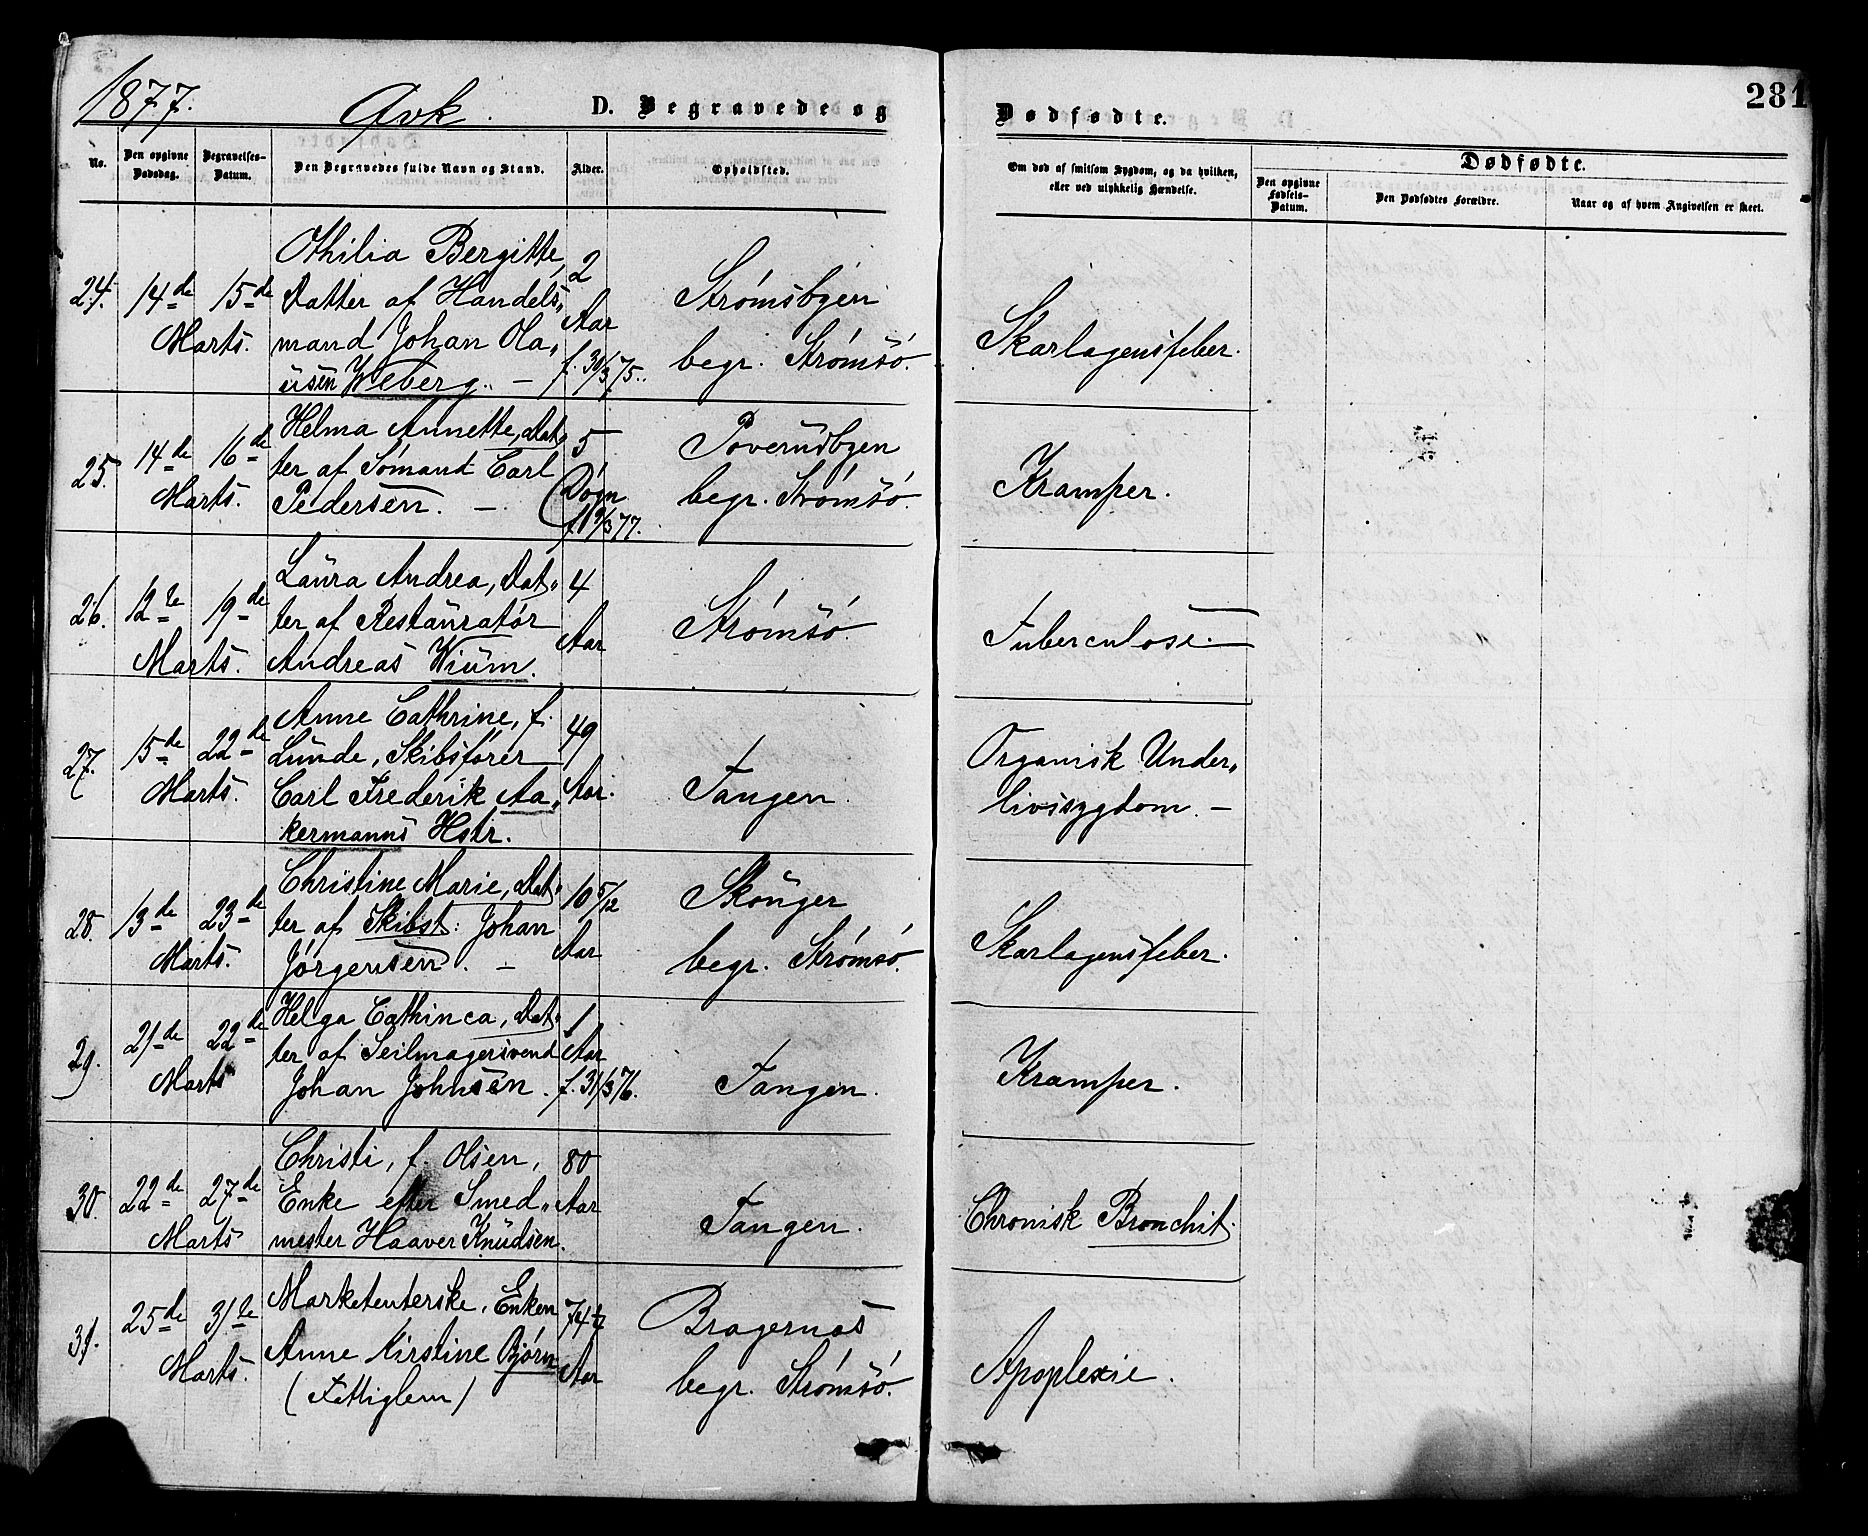 1877. Qvk. D. Begravede og Dødfødte. 281
No. Den opgivne Dødsdag. Begravelses-Datum. Den Begravedes fulde Navn og Stand. Alder. Opholdsted. Om død af smitsom Sygdom, og da hvilken, eller ved ulykkelig Hændelse. Dødfødte. Den opgivne Fødsels-Datum. Den Dødfødtes Forældre. Naar og af hvem Angivelsen er skeet.
24. 14de 15de Marts.
Othilia Bergitte,
Datter af Handels„
mand Johan Ola„
üsen Weberg. —
2 Aar f. 30/3 75.
Strømsbyen
begr. Strømsö.
Skarlagensfeber.
25. 14de 16de Marts.
Helma Annette, Dat„
ter af Sömand Carl
Pedersen. —
5 Dögn f. 9/3 77.
Poverudbyen
begr. Strømsö.
Kramper.
26. 12te 19de Marts.
Laüra Andrea, Dat„
ter af Restaüratör
Andreas Wiüm.
4 Aar
Strömsö.
Tuberculose.
27. 15de 22de Marts.
Anne Cathrine, f.
Lünde, Skibsförer
Carl Frederik Aa„
kermanns Hstr.
49 Aar.
Tangen.
Organisk Under„
livssygdom. —
28. 13de 23de Marts.
Christine Marie, Dat„
ter af Skibst: Johan
Jörgensen. —
10 5/12 Aar
Skönger
begr. Strömsö.
Skarlagensfeber.
29. 21de 22de Marts
Helga Cathinca, Dat„
ter af Seilmagersvend
Johan Johnsen.
1 Aar f. 31/3 76.
Tangen.
Kramper.
30. 22de 27de Marts
Christi, f. Olsen,
Enke efter Smed„
mester Haaver Knüdsen.
80 Aar
Tangen.
Chronisk Bronchit.
31. 25de 31te Marts.
Marketenterske, Enken
Anne Kirstine Bjørn
(Fattiglem)
74 Aar
Bragernæs
begr. Strömsö.
Apoplexie.